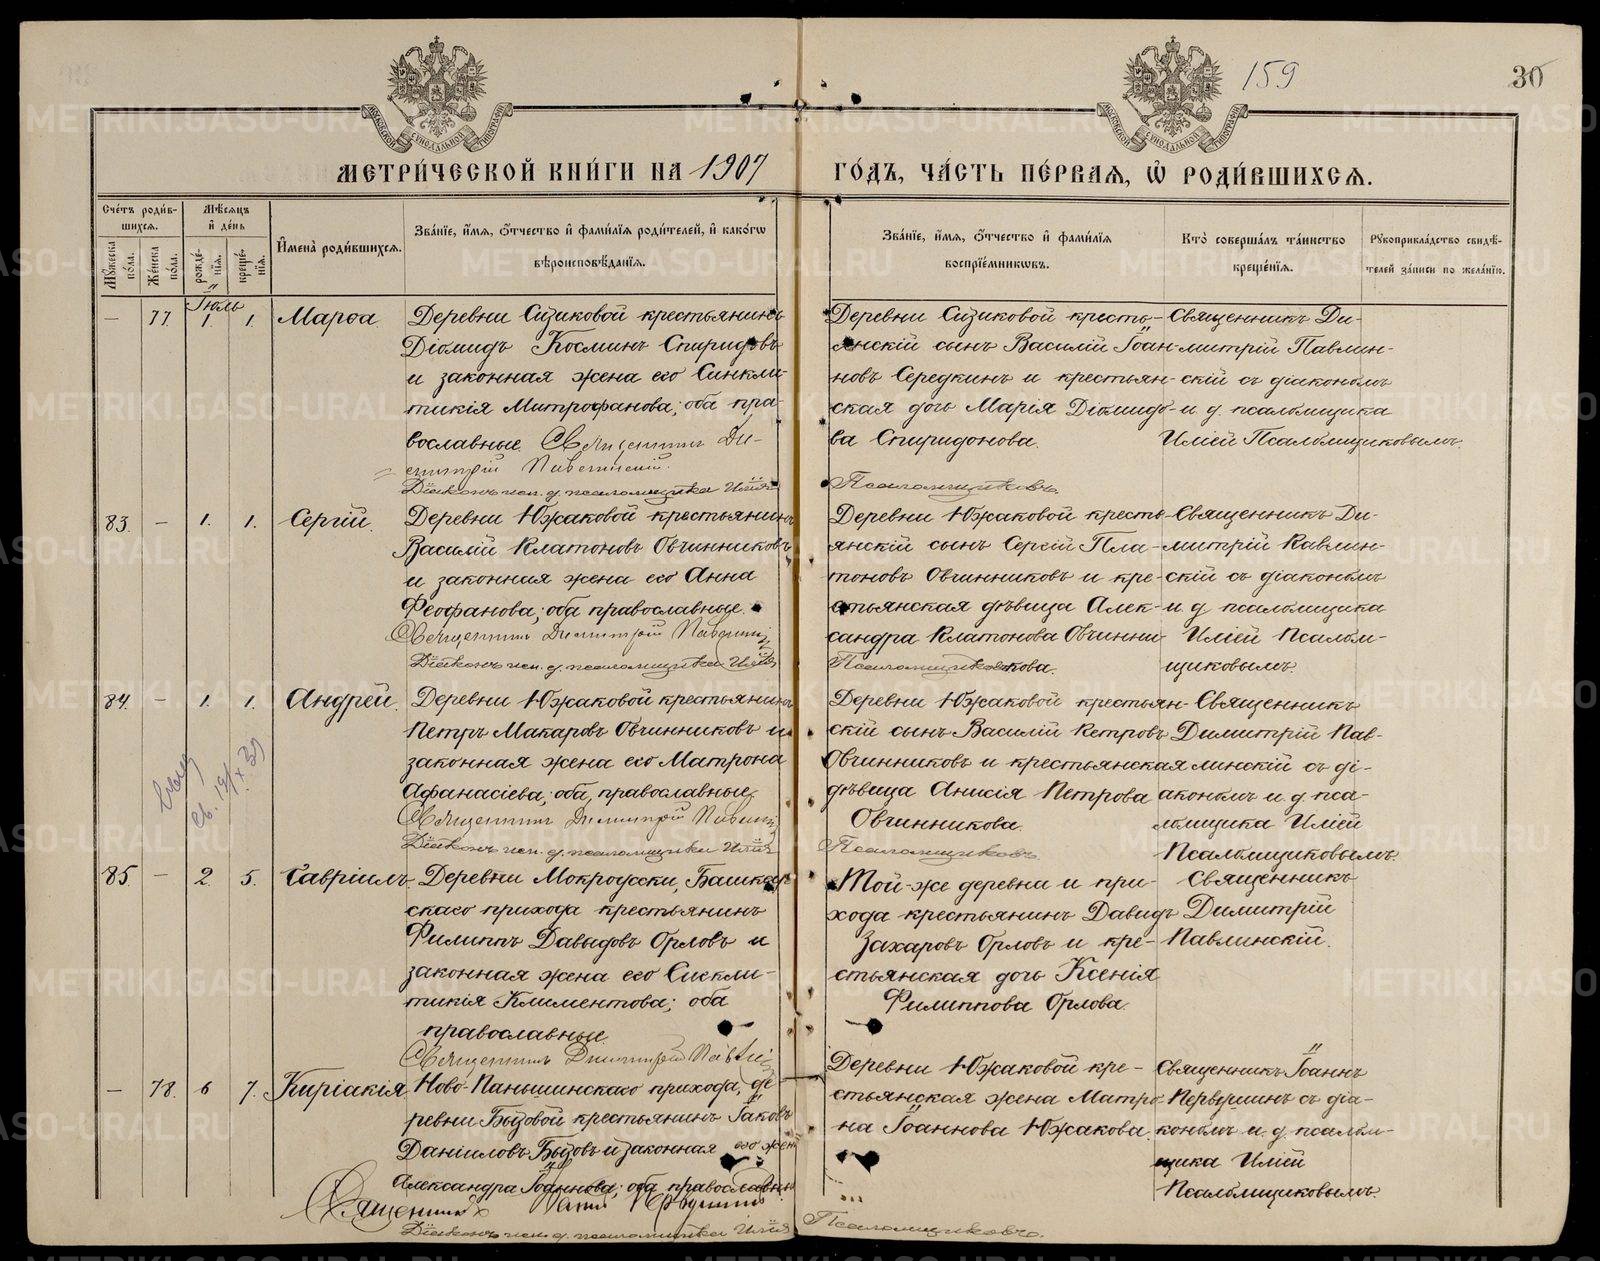 159
30
МОСКОВСКОЙ СѴНОДАЛЬНОЙ ТИПОГРАФІИ
МОСКОВСКОЙ СѴНОДАЛЬНОЙ ТИПОГРАФІИ
МЕТРИ́ЧЕСКОЙ КНИ́ГИ НА 1907 ГО́ДЪ, ЧА́СТЬ ПЕ́РВАѦ, Ѡ҆ РОДИ́ВШИХСѦ.
Сче́тъ роди́вшихсѧ.
Мѣ́сѧцъ и҆ де́нь
И҆мена̀ роди́вшихсѧ.
Зва́нїе, и҆́мѧ, ѻ҆́тчество и҆ фами́лїѧ роди́телей, и҆ како́гѡ вѣроисповѣ́данїѧ.
Зва́нїе, и҆́мѧ, ѻ҆́тчество и҆ фами́лїѧ воспрїе́мникѡвъ.
Кто̀ соверша́лъ та́инство креще́нїѧ.
Рꙋкоприкла́дство свидѣ́телей за́писи по жела́нїю.
Мꙋ́жеска по́ла.
Же́нска по́ла.
рожде́нїѧ.
креще́нїѧ.
Іюль
— 77. 1. 1. Марѳа
Деревни Сизиковой крестьянинъ
Діомидъ Косминъ Спиридовъ
и законная жена его Синкли-
тикія Митрофанова; оба пра-
вославные. Священникъ Ди-
митрій Павлинскій.
Діаконъ исп. д. псаломщика Илія
Псаломщиковъ.
Деревни Сизиковой кресть-
янскій сынъ Василій Іоан-
новъ Середкинъ и крестьян-
ская дочь Марія Діомидо-
ва Спиридонова.
Священникъ Ди-
митрій Павлин-
скій съ діакономъ
и. д. псаломщика
Иліей Псаломщиковымъ.
83. — 1. 1. Сергій.
Деревни Южаковой крестьянинъ
Василій Платоновъ Овчинниковъ
и законная жена его Анна
Феофанова; оба православные.
Священникъ Димитрій Павлинскій
Діаконъ исп. д. псаломщика Илія
Псаломщиковъ
Деревни Южаковой кресть-
янскій сынъ Сергій Пла-
тоновъ Овчинниковъ и кре-
стьянская дѣвица Алек-
сандра Платонова Овчинни-
кова.
Священникъ Ди-
митрій Павлин-
скій съ діакономъ
и. д. псаломщика
Иліей Псалом-
щиковымъ.
84. — 1. 1. Андрей.
Деревни Южаковой крестьянинъ
Петръ Макаровъ Овчинниковъ и
законная жена его Матрона
Афанасіева; оба православные.
Священникъ Димитрій Павлинскій
Діаконъ исп. д. псаломщика Илія
Псаломщиковъ
Деревни Южаковой крестьян-
скій сынъ Василій Петровъ
Овчинниковъ и крестьянская
дѣвица Анисія Петрова
Овчинникова.
Священникъ
Димитрій Пав-
линскій съ ді-
акономъ и. д. пса-
ломщика Иліей
Псаломщиковымъ.
85. — 2. 5. Гавріилъ
Деревни Мокроусски, Башкар-
скаго прихода крестьянинъ
Филиппъ Давыдовъ Орловъ и
законная жена его Синкли-
тикія Климентова; оба
православные.
Священникъ Димитрій Павлин
Той-же деревни и при-
хода крестьянинъ Давидъ
Захаровъ Орловъ и кре-
стьянская дочь Ксенія
Филиппова Орлова.
Священникъ
Димитрій
Павлинскій.
— 78. 6 7. Киріакія
Ново-Паньшинскаго прихода, де-
ревни Бызовой крестьянинъ Іаковъ
Даніиловъ Бызовъ и законная его жена
Александра Іоаннова; оба православны
Священникъ Іоаннъ Первушинъ
Діаконъ исп. д. псаломщика Илія
Псаломщиковъ.
Деревни Южаковой кре-
стьянская жена Матро-
на Іоаннова Южакова.
Священникъ Іоаннъ
Первушинъ съ діа-
кономъ и. д. псалом-
щика Иліей
Псаломщиковымъ.
METRIKI.GASO-URAL.RU